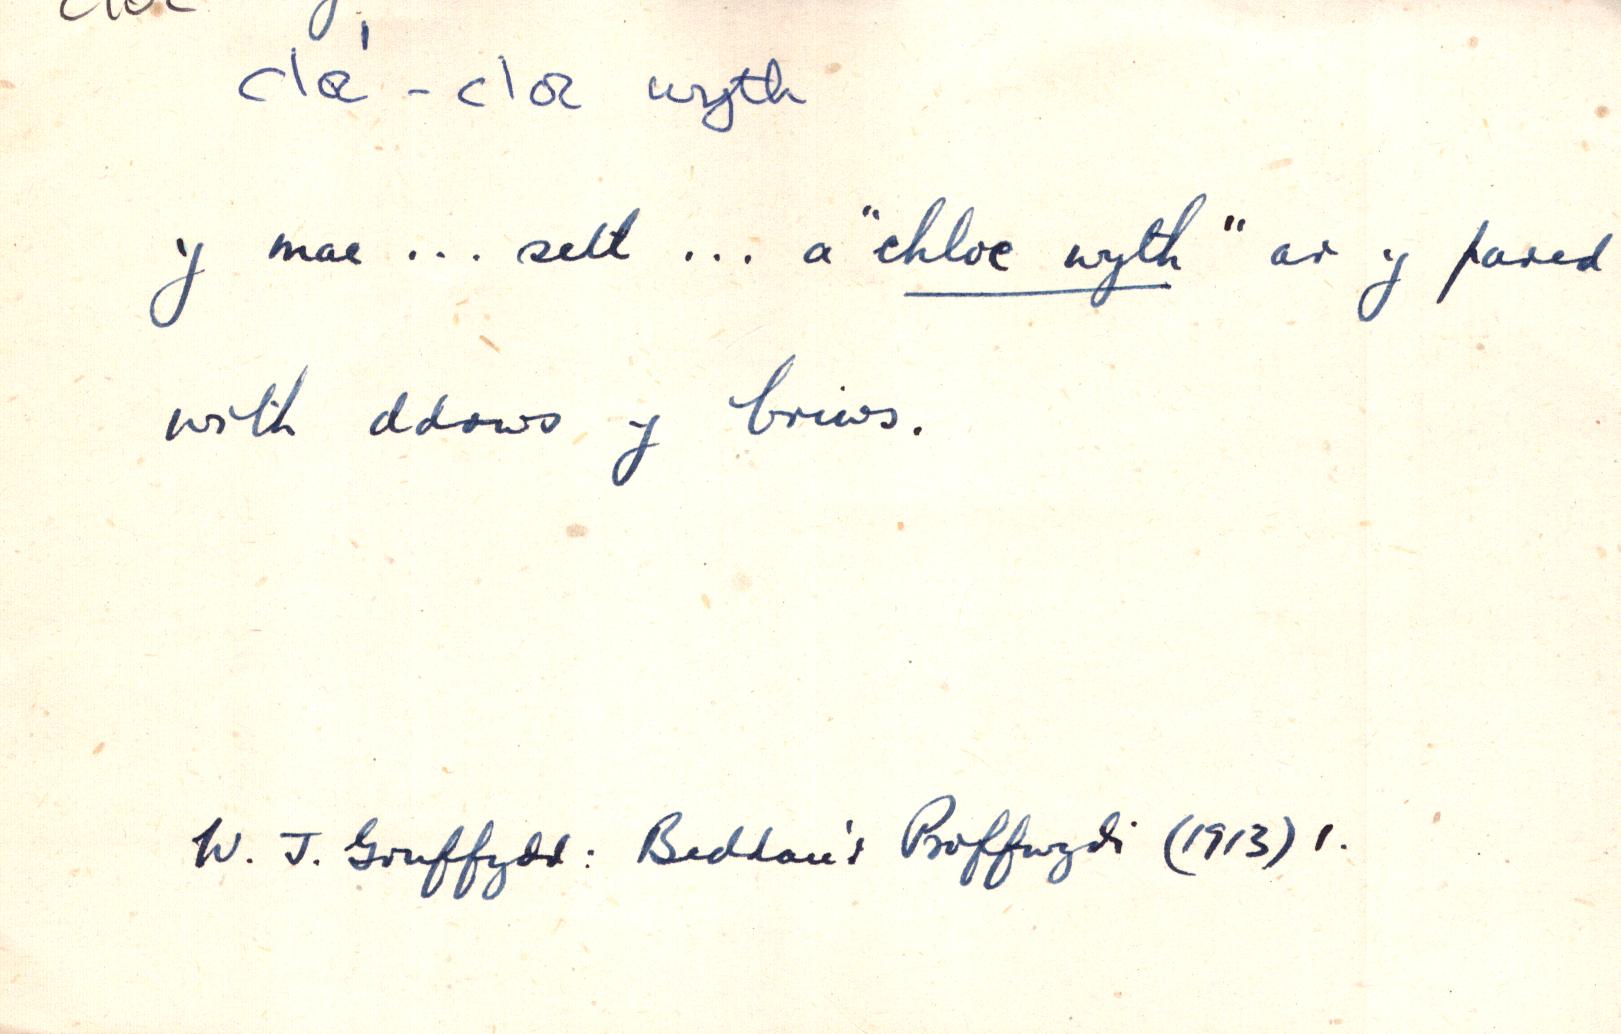 cloc
cloc¹ - cloc wyth
y mae ... selt ... a "chloc wyth" ar y pared
wrth ddrws y briws.
W. J. Gruffydd: Beddau'r Proffwydi (1913) 1.